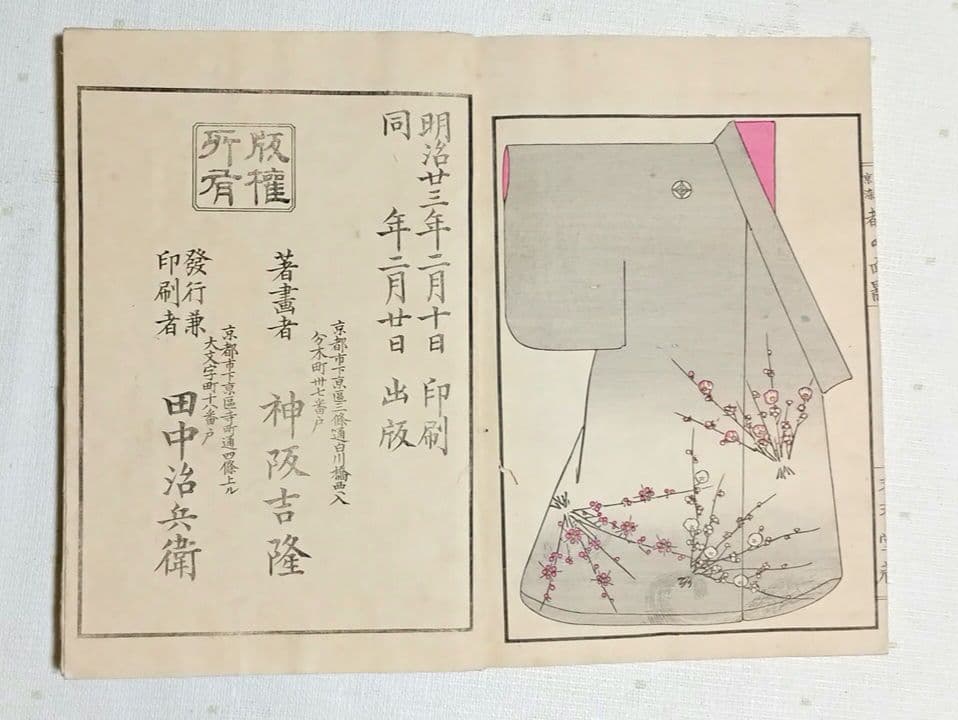 明治廿三年二月十日 印刷
同 年二月廿日 出版
版權
所有
京都市下京區三條通白川橋西入
分木町卅七番戸
著畫者 神阪吉隆
京都市下京區寺町通四條上ル
大文字町十八番戸
發行兼
印刷者 田中治兵衛